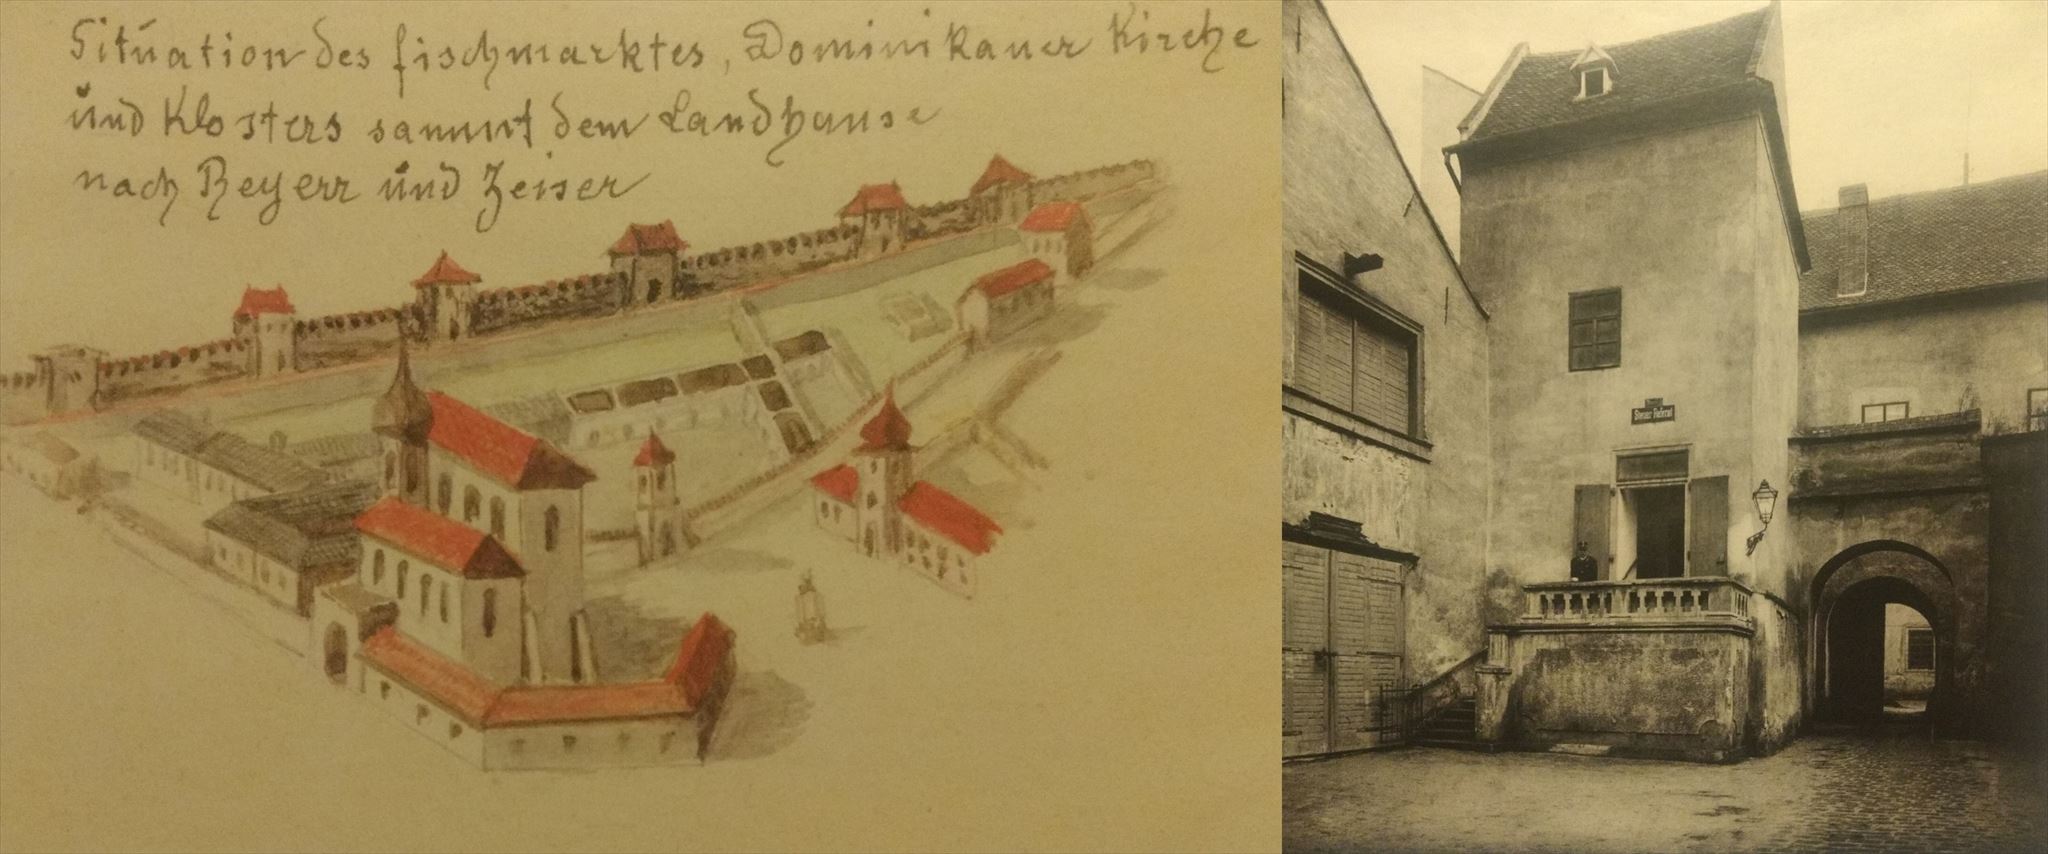 Situation des fischmarktes, Dominikaner Kirche
und Klosters sammt dem Landhause
nach Beyerr und Zeiser
Steuer Referat